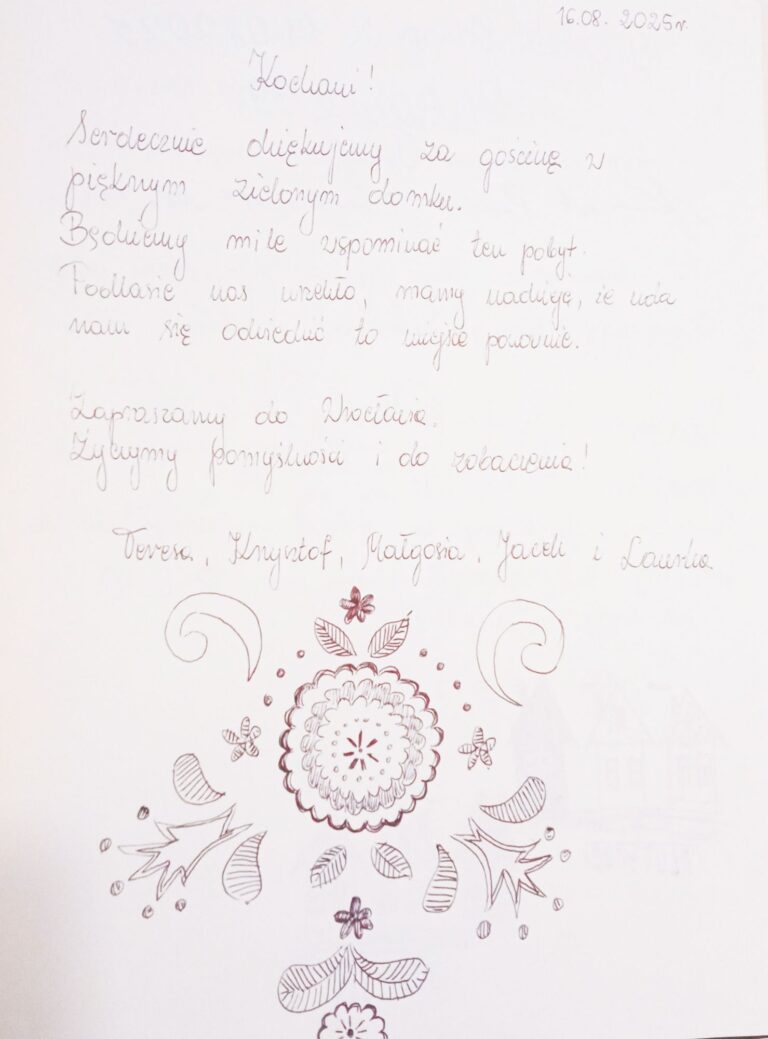 16.08.2025r.
Kochani!
Serdecznie dziękujemy za gościnę w
pięknym zielonym domku.
Będziemy mile wspominać ten pobyt.
Podlasie nas urzekło, mamy nadzieję, że uda
nam się odwiedzić to miejsce ponownie.
Zapraszamy do Wrocławia.
Życzymy pomyślności i do zobaczenia!
Teresa, Krzysztof, Małgosia, Jacek i Laurka